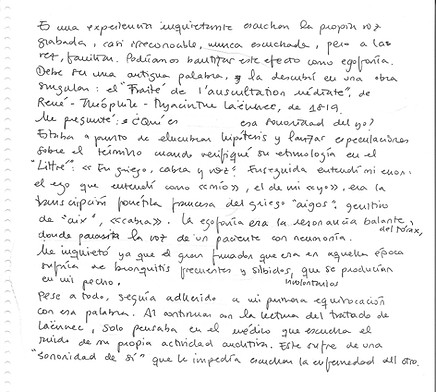 Es una experiencia inquietante escuchar la propia voz
grabada, casi irreconocible, nunca escuchada, pero a la
vez, familiar. Podríamos bautizar este efecto como egofonía.
Debe ser una antigua palabra, y la descubrí en una obra
singular: el "Traité de l'auscultation médiate", de
René-Théophile-Hyacinthe Laënnec, de 1819.
Me pregunté: ¿Qué es esa sonoridad del yo?
Estaba a punto de elucubrar hipótesis y lanzar especulaciones
sobre el término cuando verifiqué su etimología en el
"Littré": «En griego, cabra y voz». Enseguida entendí mi error:
el ego que entendí como «mío», el de mi «yo», era la
transcripción fonética francesa del griego "aigos", genitivo
de "aix", «cabra». La egofonía era la resonancia balante,
del tórax,
donde parecía la voz de un paciente con neumonía.
Me inquietó ya que el gran fumador que era en aquella época
sufría de bronquitis frecuentes y silbidos, que se producían
en mi pecho.
involuntarios
Pese a todo, seguía adherido a mi primera equivocación
con esa palabra. Al continuar con la lectura del tratado de
Laënnec, solo pensaba en el médico que escucha el
ruido de su propia actividad auditiva. Este sufre de una
"sonoridad de sí" que le impedía escuchar la enfermedad del otro.